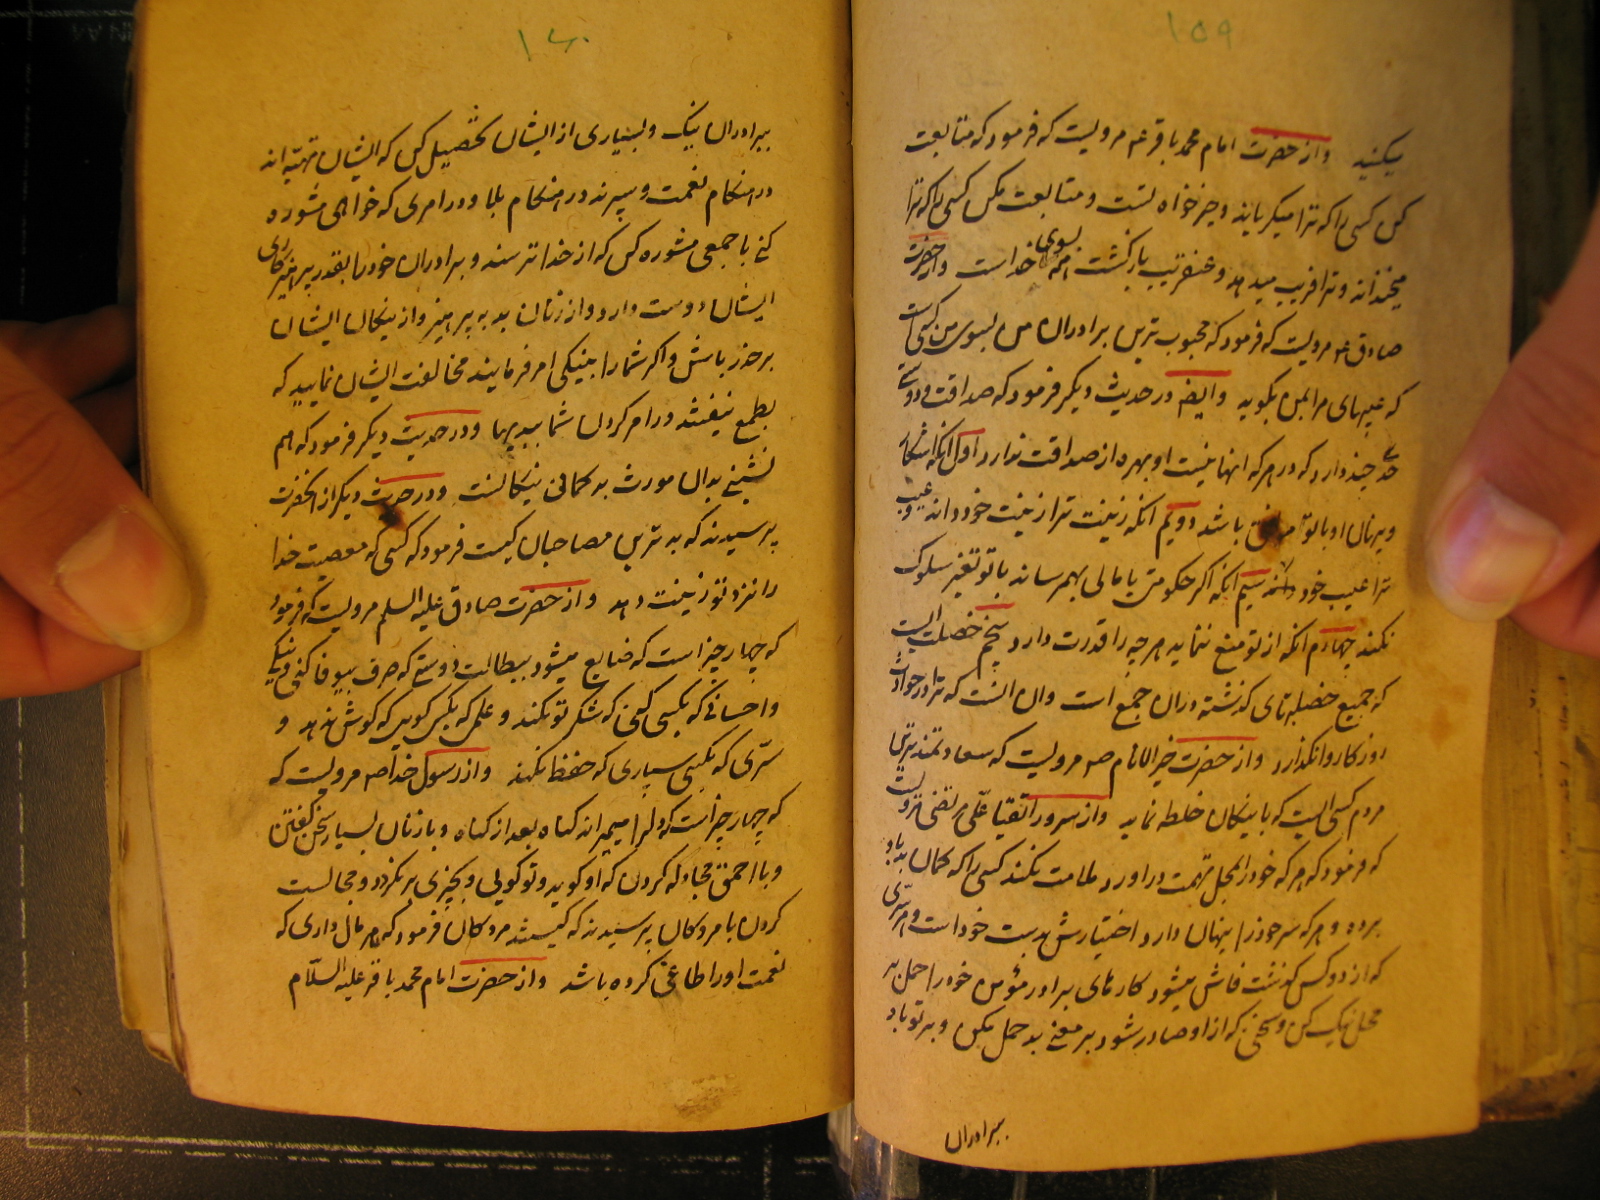 ۱۵۹
میکنید واز حضرت امام محمد باقر عم مرویست که فرمود که متابعت
کن کسی را که ترا میگریاند و خیر خواه تست و متابعت مکن کسی را که ترا
میخنداند و ترا فریب میدهد و عنقریب بازگشت همه بسوی خداست واز حضرت
صادق عم مرویست که فرمود که محبوب ترین برادران من بسوی من کسی است
که عیبهای مرا بمن بگوید وایضا در حدیث دیگر فرمود که صداقت و دوستی
حدی چند دارد که در هر که اینها نیست او بهره از صداقت ندارد اول انکه اشکار
و پنهان او با تو موافق باشد دویم انکه زینت ترا زینت خود داند و عیب
ترا عیب خود داند سیم انکه اگر حکومتی یا مالی بهم رساند با تو تغیر سلوک
نکند چهارم انکه از تو منع ننماید هر چه را قدرت دارد پنجم خصلت ایست
که جمیع خصلتهای گذشته دران جمع است وان انست که ترا در حوادث
روزگار وانگذارد واز حضرت خیر الانام ص مرویست که سعادتمندترین
مردم کسی است که با نیکان خلطه نماید واز سرور اتقیا علی مرتضی مرویست
که فرمود که هر که خود را بمحل تهمت دراورد ملامت نکند کسی را که گمان بد باو
برد و هر که سر خود را پنهان دارد اختیارش بدست خود است و هر سری
که از دو کس گذشت فاش میشود کارهای برادر مؤمن خود را حمل بر
محل نیک کن و سخنی که از او صادر شود بر معنی بد حمل مکن و بر تو باد
ببرادران
۱۶۰
ببرادران نیک و بسیاری از ایشان تحصیل کن که ایشان تهیه اند
در هنگام نعمت و سپرند در هنگام بلا و در امری که خواهی مشوره
کنی با جمعی مشوره کن که از خدا ترسند و برادران خود را بقدر پرهیزکاری
ایشان دوست دار و از زنان بد به پرهیز و از نیکان ایشان
بر حذر باش و اگر شما را بنیکی امر فرمایند مخالفت ایشان نمایید که
بطمع نیفتند در امر کردن شما ببدیها و در حدیث دیگر فرمود که هم
نشینی بدان مورث بدگمانی نیکانست و در حدیث دیگر از انحضرت
پرسیدند که بدترین مصاحبان کیست فرمود که کسی که معصیت خدا
را نزد تو زینت دهد واز حضرت صادق علیه السلم مرویست که فرمود
که چهار چیز است که ضایع میشود ببطالت دوستی که صرف بیوفا کنی و نیکی
و احسانی که بکسی کنی که شکر تو نکند و علمی که بکسی گویی که گوش ندهد و
سری که بکسی سپاری که حفظ نکند واز رسول خدا ص مرویست که
که چهار چیز است که دل را میمیراند گناه بعد از گناه و با زنان بسیار سخن گفتن
و با احمق مجادله کردن که او گوید و تو گویی و بچیزی برنگردد و مجالست
کردن با مردگان پرسیدند که کیستند مردگان فرمود که هر مال داری که
نعمت او را طاغی کرده باشد واز حضرت امام محمد باقر علیه السلام